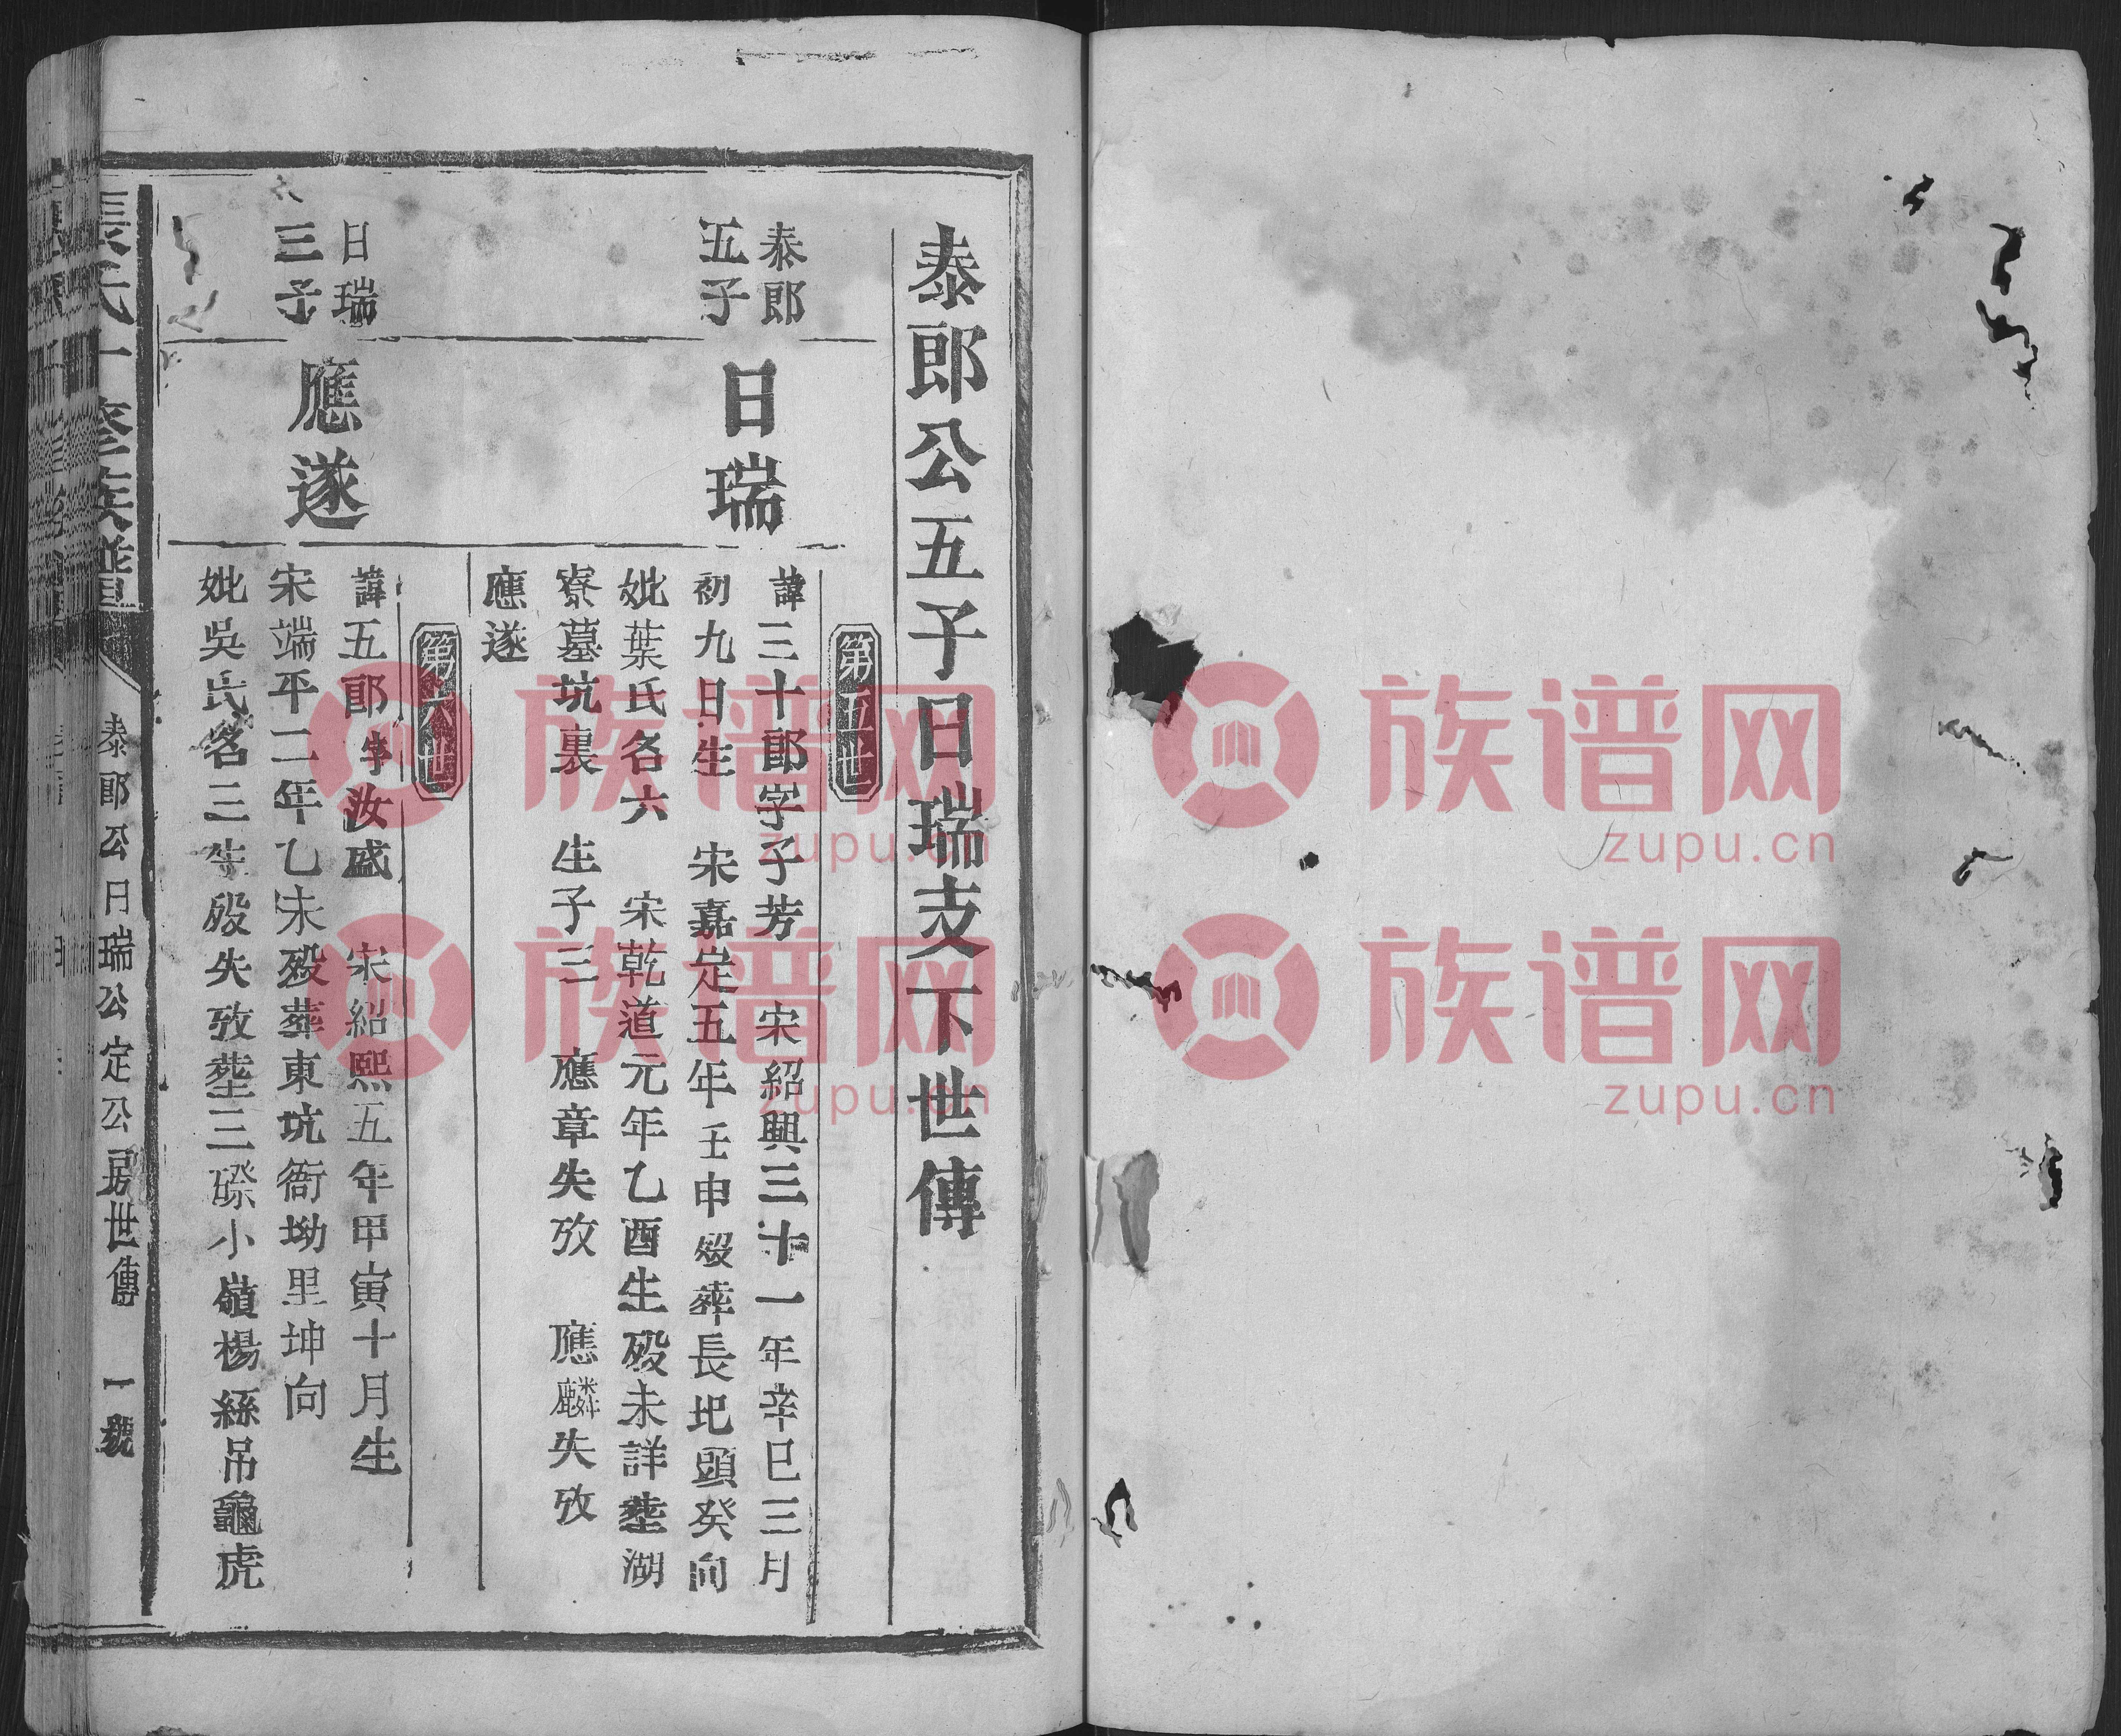 泰郎公五子日瑞支下世傳
第五世
泰郎
五子
日瑞
諱三十郎字子芳 宋紹興三十一年辛巳三月
初九日生 宋嘉定五年壬申歿葬長圯頭癸向
妣葉氏名六 宋乾道元年乙酉生歿未詳塟湖
寮墓坑裏 生子三 應章失攷 應麟失攷
應遂
第六世
日瑞
三子
應遂
諱五郎字汝盛 宋紹熙五年甲寅十月生
宋端平二年乙未歿葬東坑衙坳里坤向
妣吳氏名三生歿失攷塟三磜小嶺楊絲吊龜虎
張氏十修族譜
泰郎公日瑞公定公房世傳 一號
族谱网
zupu.cn
族谱网
zupu.cn
族谱网
zupu.cn
族谱网
zupu.cn